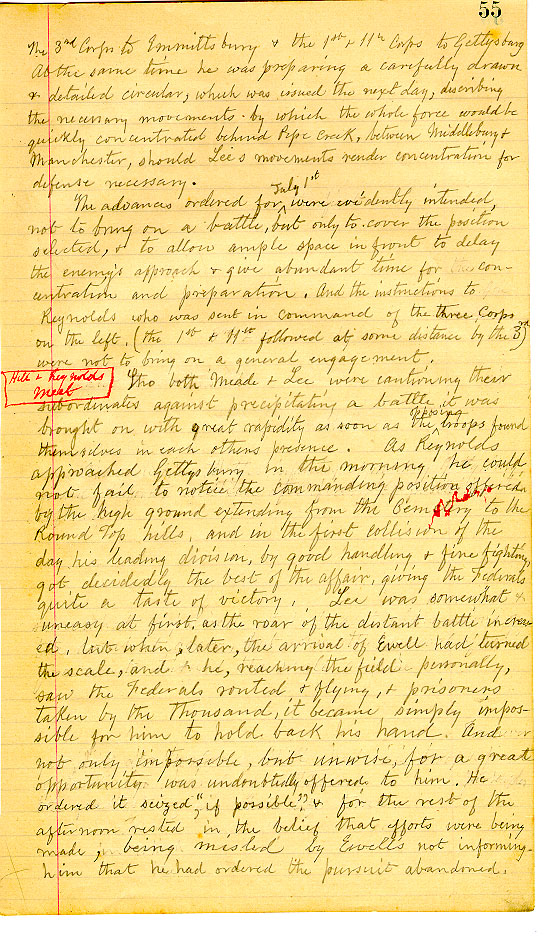 55
The 3rd Corps to Emmittsburg & the 1st & 11th Corps to Gettysburg
At the same time he was preparing a carefully drawn
& detailed circular, which was issued the next day, discribing
the necessary movements by which the whole force would be
quickly concentrated behind Pipe Creek, between Middleburg &
Manchester, should Lee's movements render concentration for
defense necessary.
July 1st
The advances ordered for, were evidently intended,
not to bring on a battle, but only to cover the position
selected, & to allow ample space in front to delay
the enemy's approach & give abundant time for con-
centration and preparation. And the instructions to
Reynolds who was sent in command of the three Corps
on the left, (the 1st & 11th followed at some distance by the 3rd)
were not to bring on a general engagement.
Hill & Reynolds
Meet
Tho both Meade & Lee were cautioning their
subordinates against precipitating a battle, it was
opposing
brought on with great rapidity as soon as the troops found
themselves in each others presence. As Reynolds
approached Gettysburg in the morning he could
not fail to notice the commanding position offered
by the high ground extending from the Cemetery to the
Round Top hills, and in the first collision of the
day his leading division, by good handling & fine fighting,
got decidedly the best of the affair, giving the Federals
quite a taste of victory. Lee was somewhat
uneasy at first, as the roar of the distant battle increas-
ed, but when, later, the arrival of Ewell had turned
the scale, and he, reaching the field personally,
saw the Federals routed & flying, & prisoners
taken by the thousand, it became simply impos-
sible for him to hold back his hand. And
not only impossible, but unwise, for a great
opportunity was undoubtedly offered to him. He
ordered it seized, "if possible", & for the rest of the
afternoon rested in the belief that efforts were being
made, being misled by Ewell's not informing
him that he had ordered the pursuit abandoned.